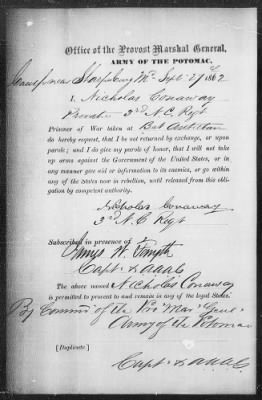 Office of the Provost Marshal General,
ARMY OF THE POTOMAC,
Camp near Sharpsburg Md Sept 27 1862
I, Nicholas Conaway
Private 3rd N.C. Regt
Prisoner of War taken at Bat Antietam
do hereby request, that I be not returned by exchange, or upon
parole; and I do give my parole of honor, that I will not take
up arms against the Government of the United States, or in
any manner give aid or information to its enemies, or go within
any of the States now in rebellion, until released from this obligation
by competent authority.
Nicholas Conaway
3rd N.C. Regt
Subscribed in presence of
James W. Forsyth
Capt & AAAG
The above named Nicholas Conaway
is permitted to pass to and remain in any of the loyal States.
By Command of the Pro Mar Genl
Army of the Potomac
Capt & AAAG.
[Duplicate.]